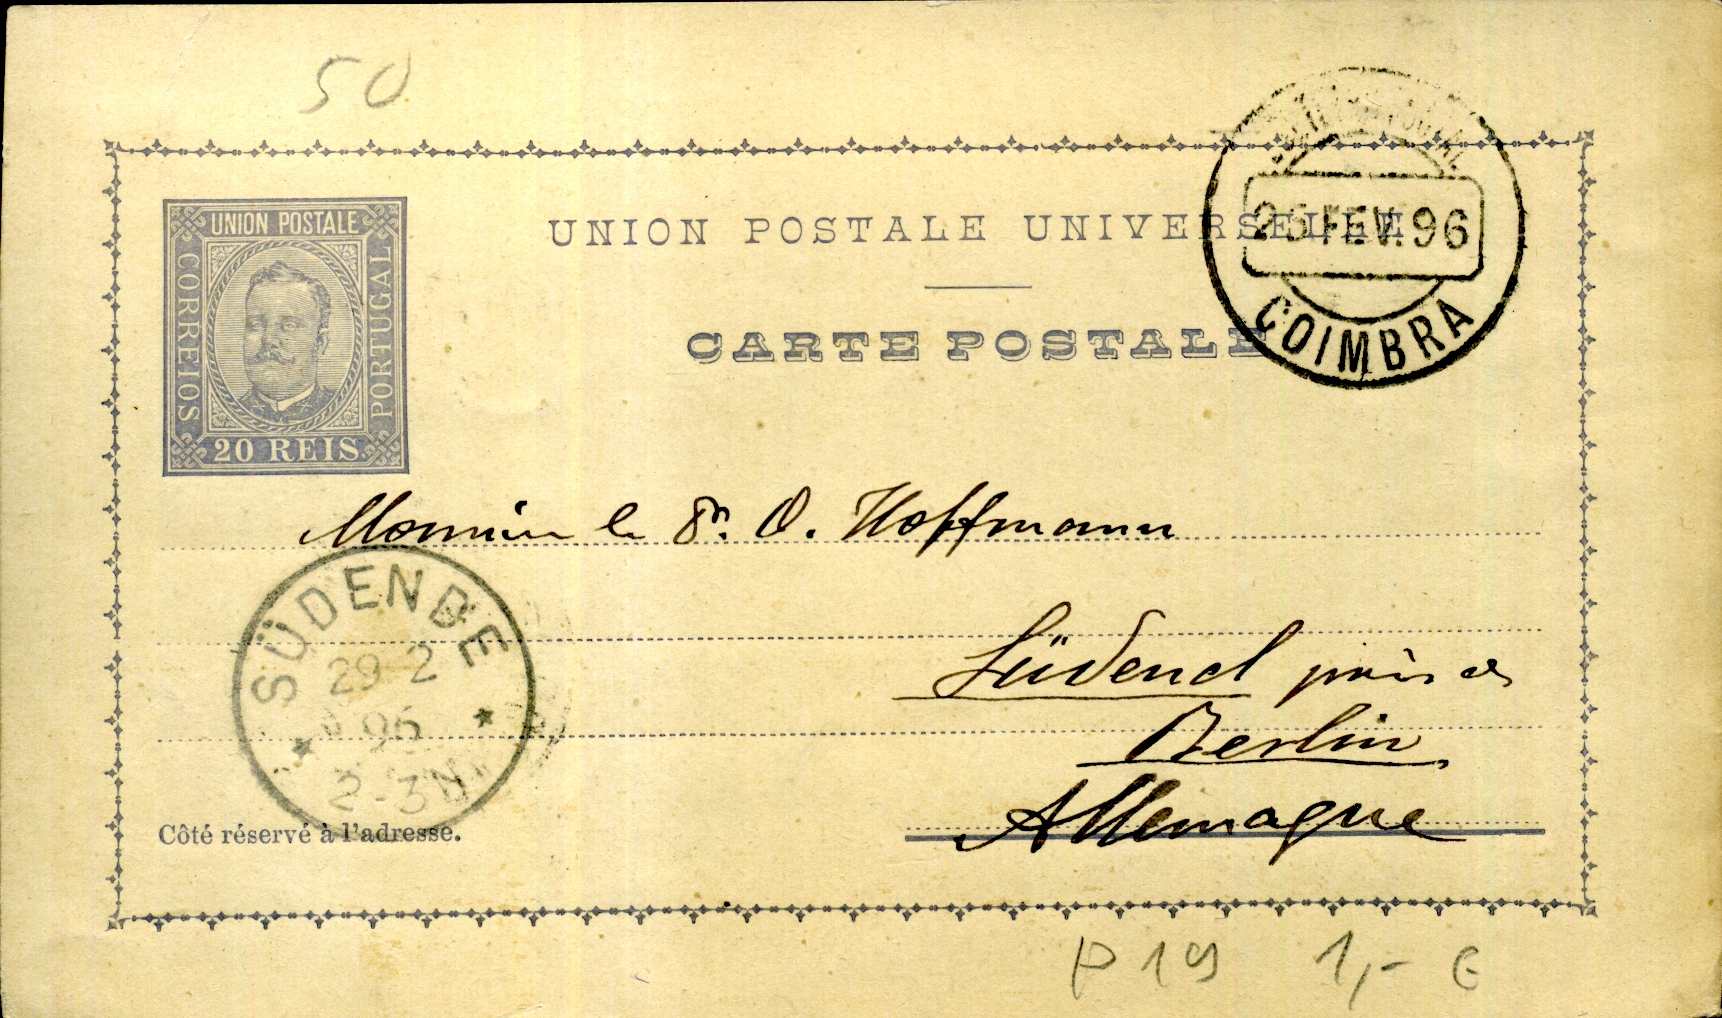 50
UNION POSTALE
CORREIOS
PORTUGAL
20 REIS
UNION POSTALE UNIVERSELLE
CARTE POSTALE
FEV. 96
COIMBRA
Monsieur le Dr. O. Hoffmann
Südend près de
Berlin
Allemagne
SÜDENDE
29 2
96
2-3N
Côté réservé à l'adresse.
P 19 1,- €